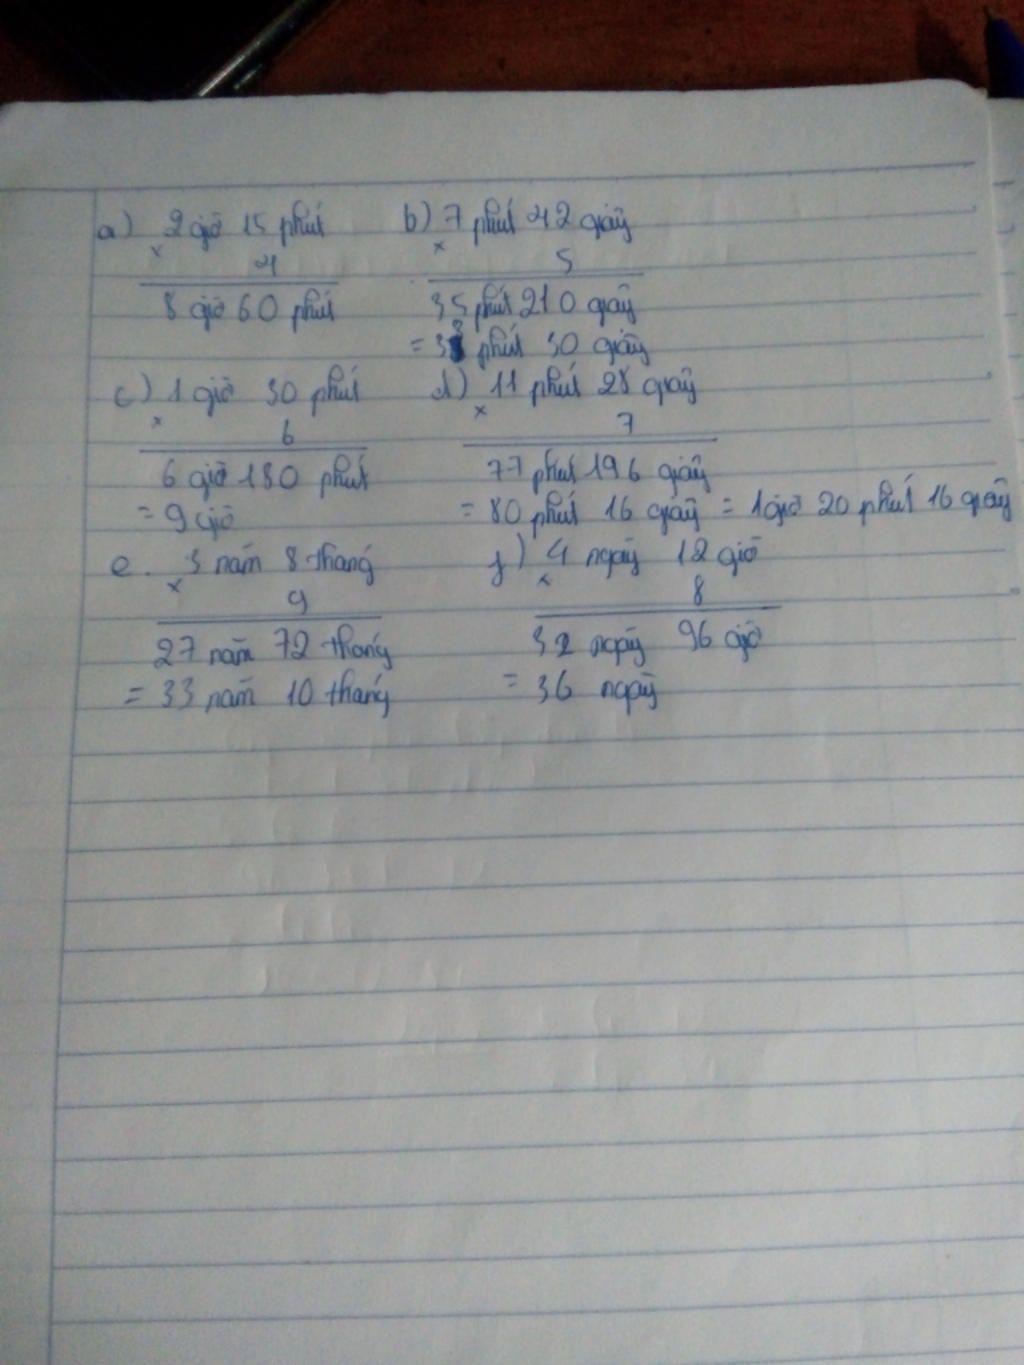 a) 2 giờ 15 phút b) 7 phút 42 giây
× 4 × 5
8 giờ 60 phút 35 phút 210 giây
= 38 phút 30 giây
c) 1 giờ 30 phút d) 11 phút 28 giây
× 6 × 7
6 giờ 180 phút 77 phút 196 giây
= 9 giờ = 80 phút 16 giây = 1giờ 20 phút 16 giây
e. 3 năm 8 tháng f) 4 ngày 12 giờ
× 9 × 8
27 năm 72 tháng 32 ngày 96 giờ
= 33 năm 10 tháng = 36 ngày